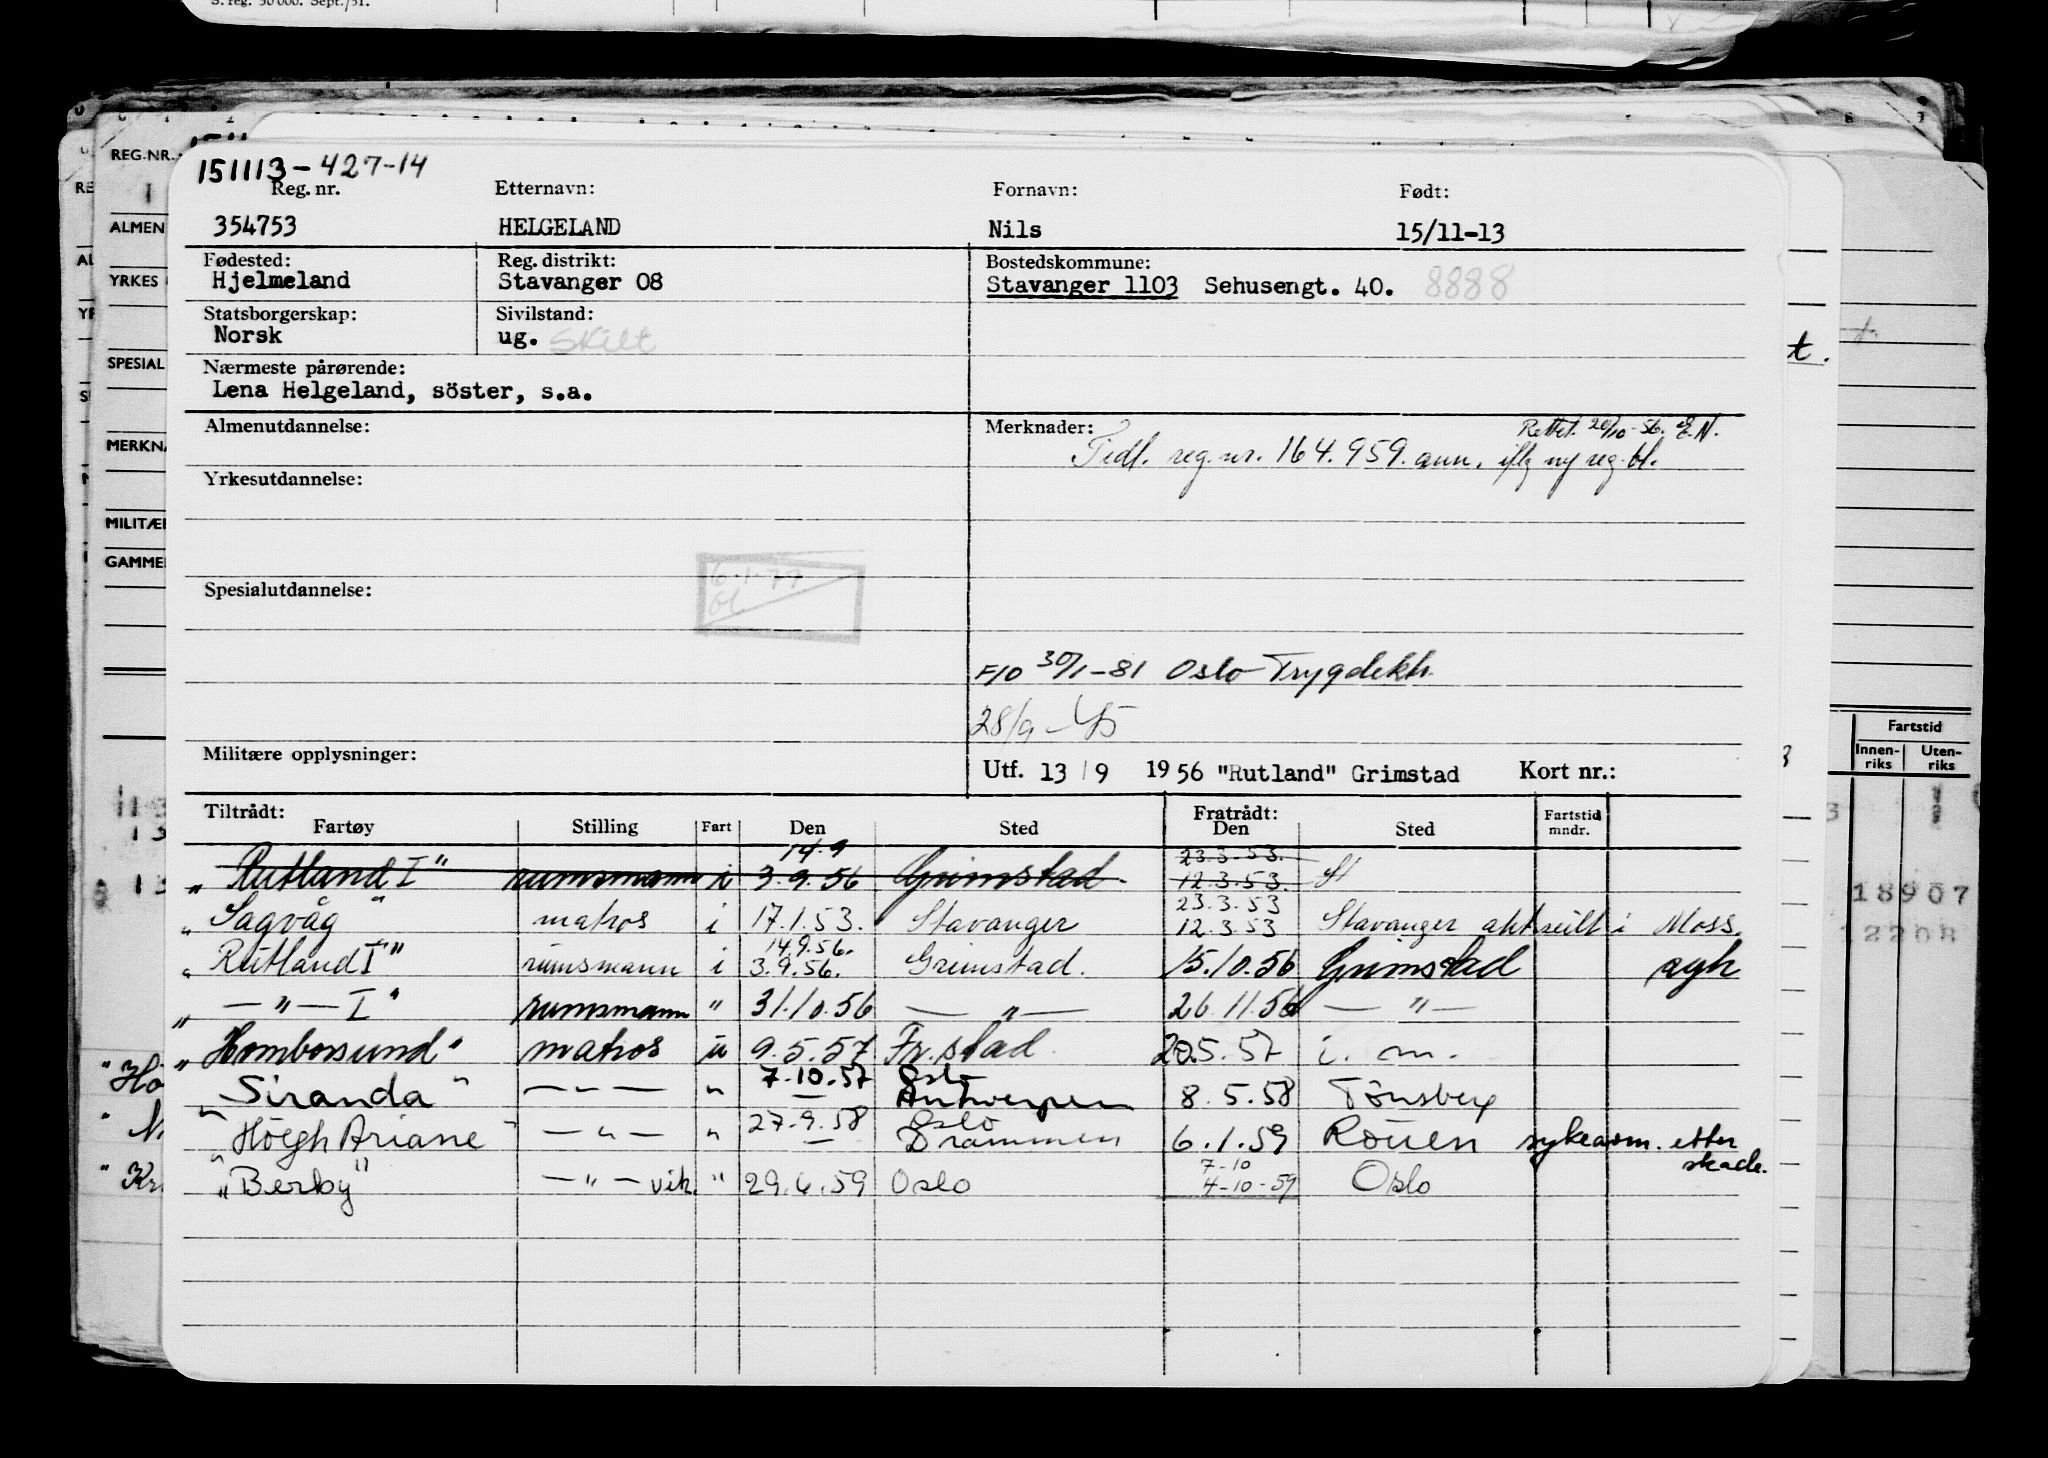 S. reg. 50 000. Sept./51.
REG.NR.
ALMEN
YRKES
SPESIAL
MERKNA
MILITÆR
GAMMEL
151113-427-14
Reg. nr. Etternavn: Fornavn: Født:
354753 HELGELAND Nils 15/11-13
Fødested: Reg. distrikt: Bostedskommune:
Hjelmeland Stavanger 08 Stavanger 1103 Sehusengt. 40. 8888
Statsborgerskap: Sivilstand:
Norsk ug. skilt
Nærmeste pårørende:
Lena Helgeland, söster, s.a.
Almenutdannelse: Merknader: Rettet 20/10-56. E.N.
Tidl. reg. nr. 164.959. ann. iflg ny reg. bl.
Yrkesutdannelse:
6.1-77
Spesialutdannelse:
F10 30/1-81 Oslo Trygdekh.
28/9-45
Militære opplysninger: Utf. 13/9 1956 "Rutland" Grimstad Kort nr.:
Tiltrådt: Fratrådt:
Fartøy Stilling Fart Den Sted Den Sted Fartstid mndr.
14.9 23.3.53.
„Rutland I" rumsmann i 3.9.56 Grimstad 12.3.53 St
23.3.53
„Sagvåg" matros i 17.1.53. Stavanger 12.3.53 Stavanger i Moss.
14.9.56.
„Rutland I" rumsmann i 3.9.56. Grimstad. 15.10.56 Grimstad agh
„ — " — I" rumsmann " 31.10.56 — " — 26.11.56 — " —
„Homborsund" matros u 9.5.57 Fr.stad 20.5.57 i. m.
7.10.57 Oslo
„Siranda" — " — " — Antwerpen 8.5.58 Tønsberg
27.9.58 Oslo
„Höegh Ariane" — " — " — Drammen 6.1.59 Rouen sykeavm. etter skade.
7-10
„Berby" — " — vik. " 29.6.59 Oslo 4-10-59 Oslo
Fartstid
Innenriks Utenriks
18907
12208